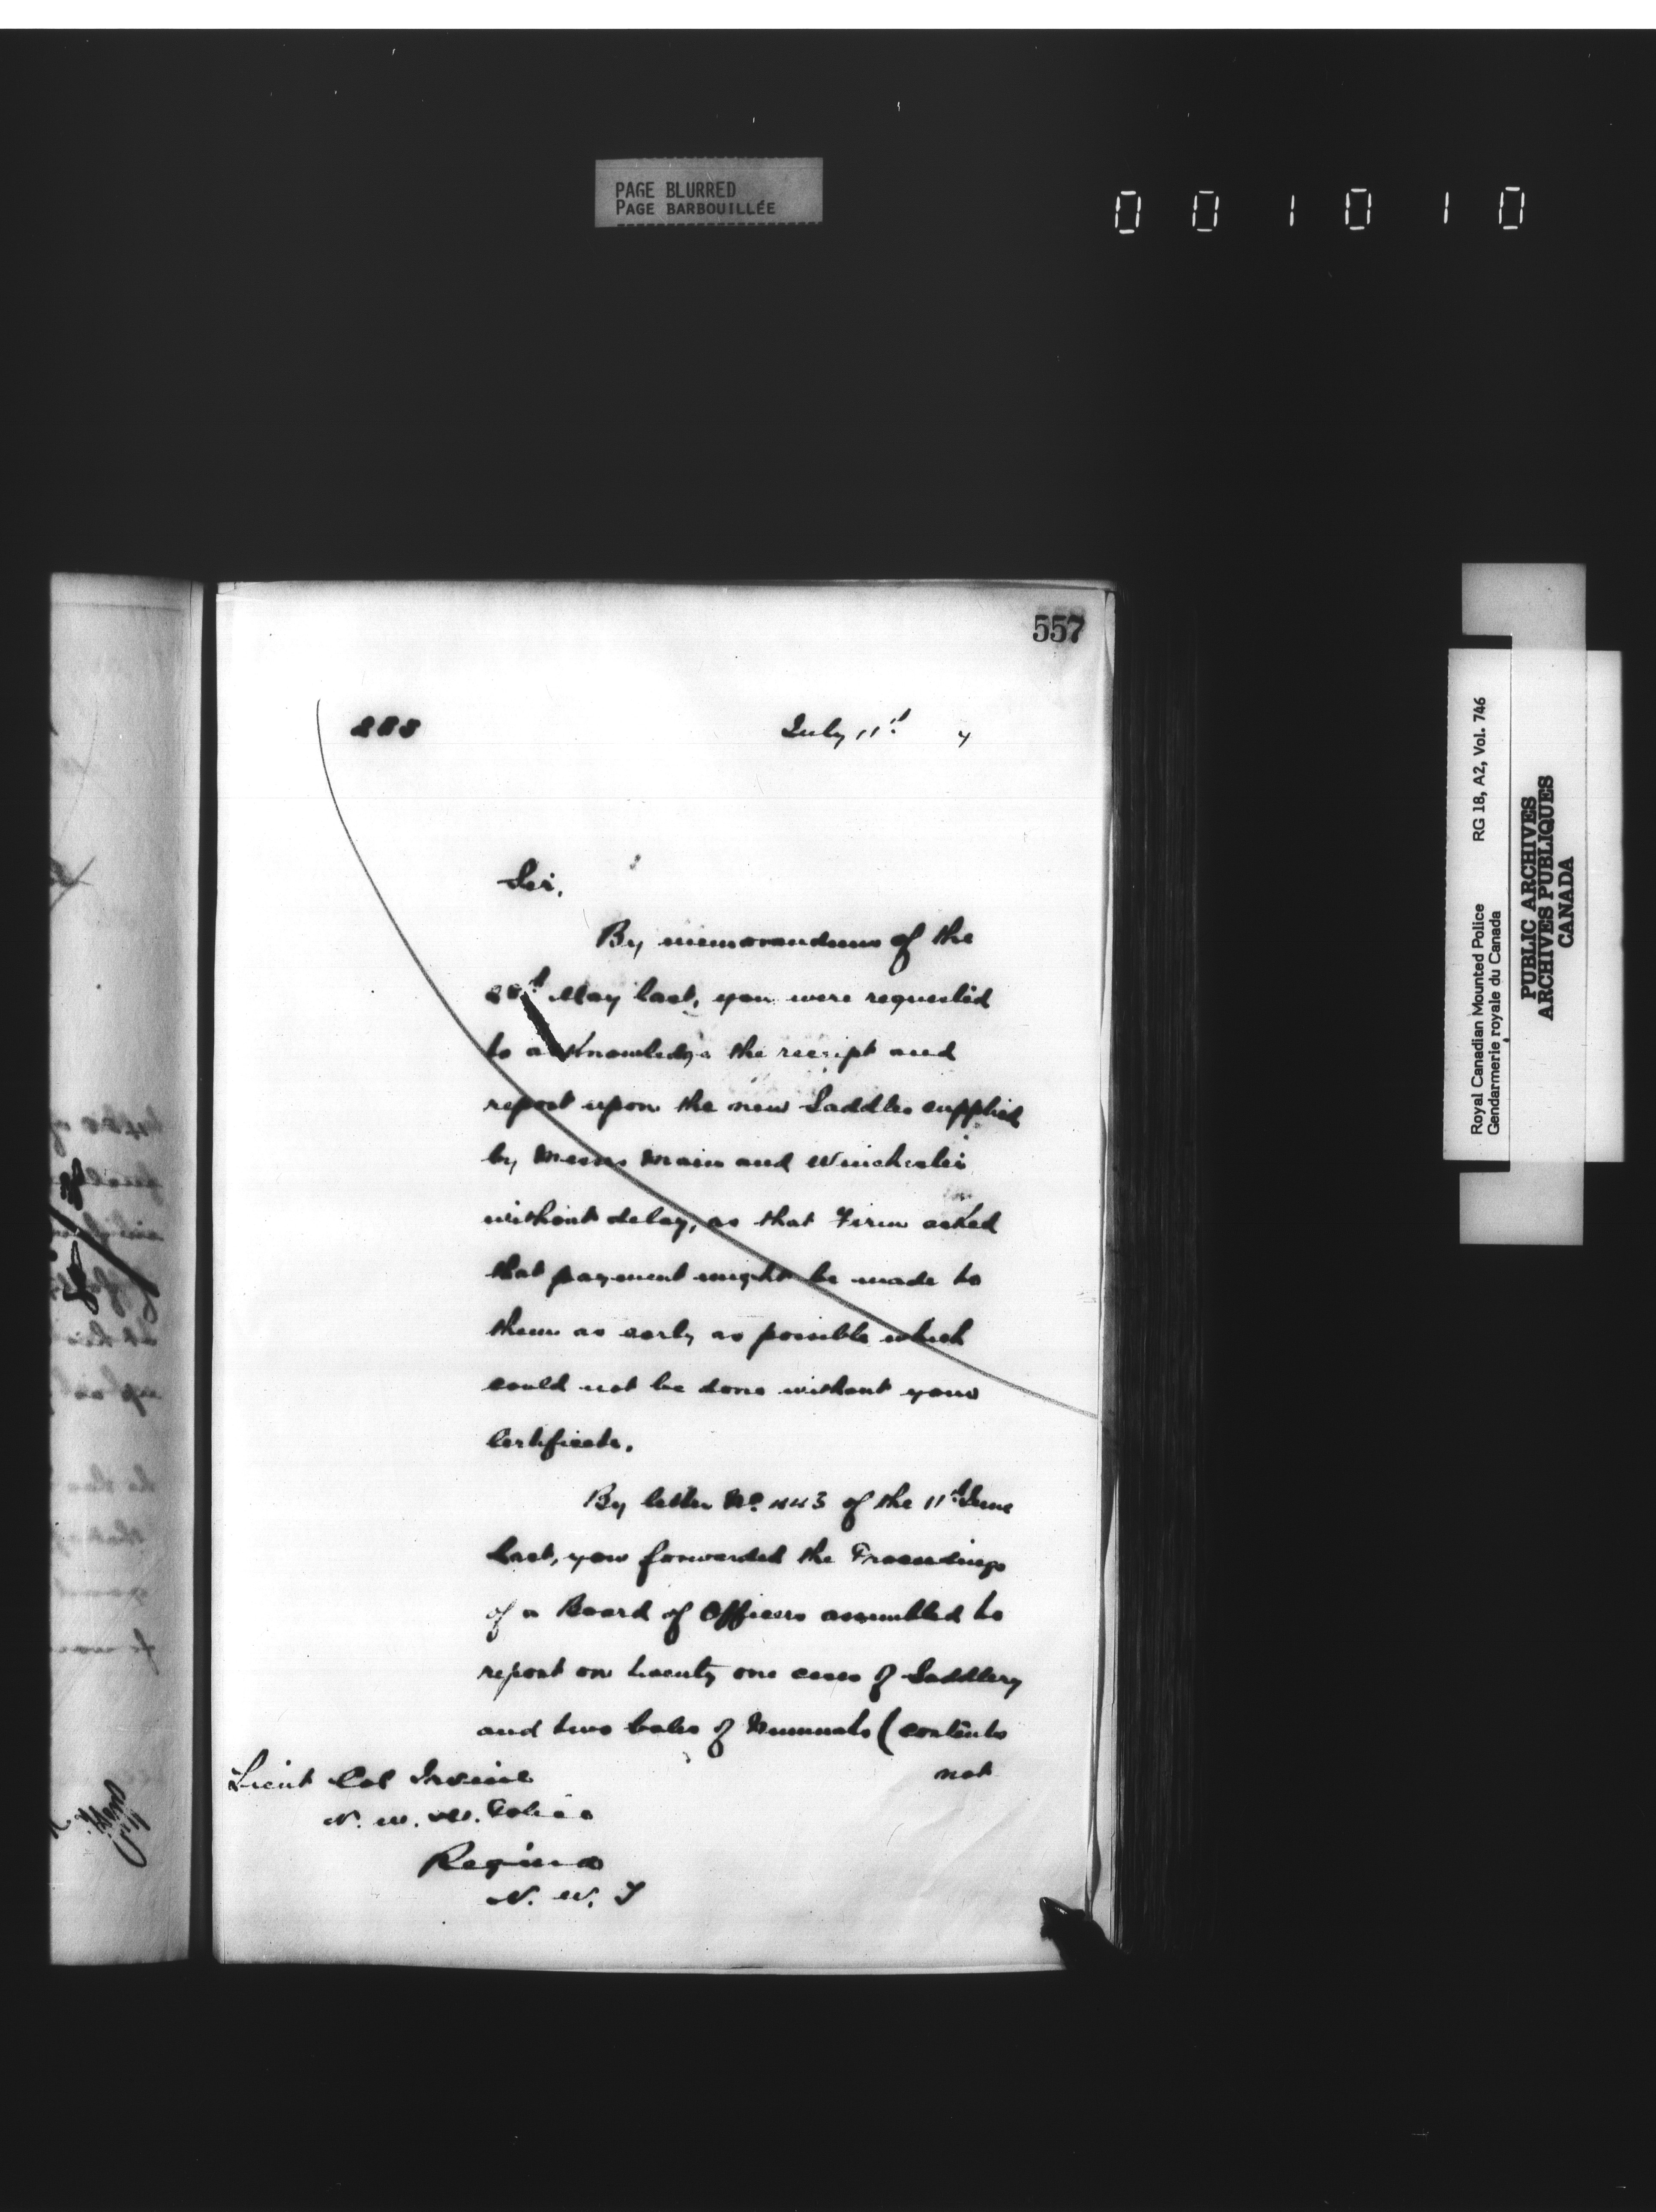 PAGE BLURRED
PAGE BARBOUILLÉE
0 0 1 0 1 0
557
July 11th 4
Sir,
By memorandum of the
May last, you were requested
to acknowledge the receipt and
report upon the new Saddles supplied
by Messrs Main and Winchester
without delay, as that Firm asked
that payment might be made to
them as early as possible which
could not be done without your
Certificate.
By letter No. 443 of the 11th June
last, you forwarded the Proceedings
of a Board of Officers assembled to
report on twenty one cases of Saddlery
and two bales of Numnahs (contents
not
Lieut Col Irvine
N. W. M. Police
Regina
N. W. T
Royal Canadian Mounted Police RG 18, A2, Vol. 746
Gendarmerie royale du Canada
PUBLIC ARCHIVES
ARCHIVES PUBLIQUES
CANADA